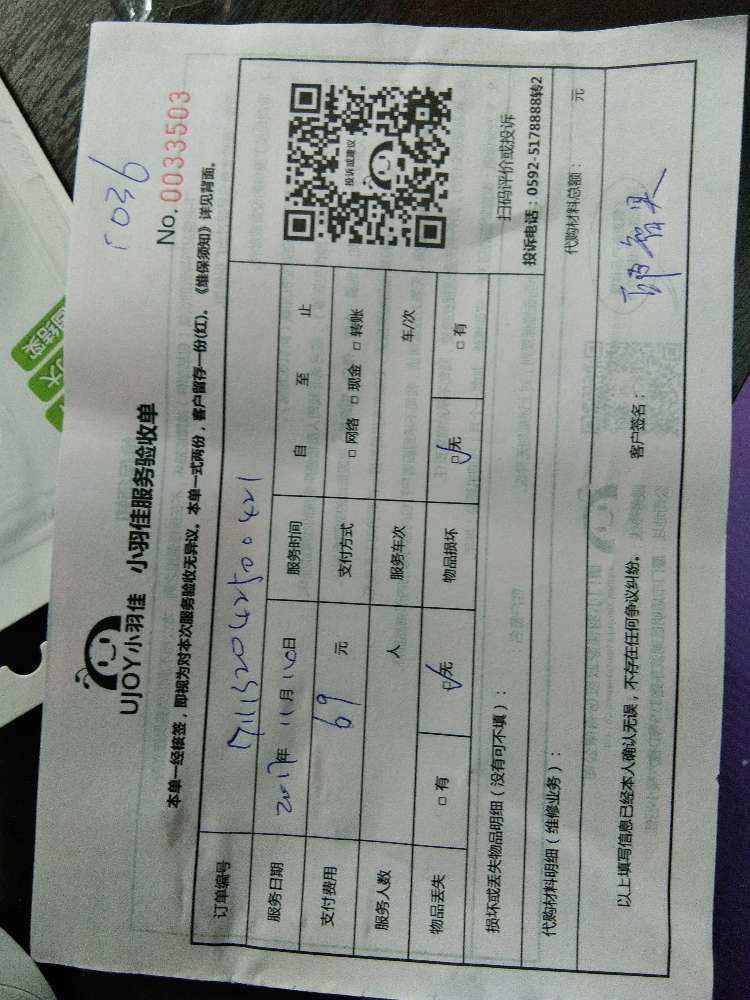 1036
No. 0033503
UJOY小羽佳 小羽佳服务验收单
本单一经核签，即视为对本次服务验收无异议。本单一式两份，客户留存一份(红)。《维保须知》详见背面。
订单编号
服务日期 2017年 11月 10日 服务时间 自 至 止
支付费用 69 元 支付方式 □ 网络 □ 现金 □ 转账
服务人数 人 服务车次 车/次
物品丢失 □ 有 □ 无 物品损坏 □ 无 □ 有
投诉或建议
扫码评价或投诉
投诉电话：0592-5178888转2
损坏或丢失物品明细（没有可不填）：
代购材料明细（维修业务）： 代购材料总额： 元
以上填写信息已经本人确认无误，不存在任何争议纠纷。 客户签名：